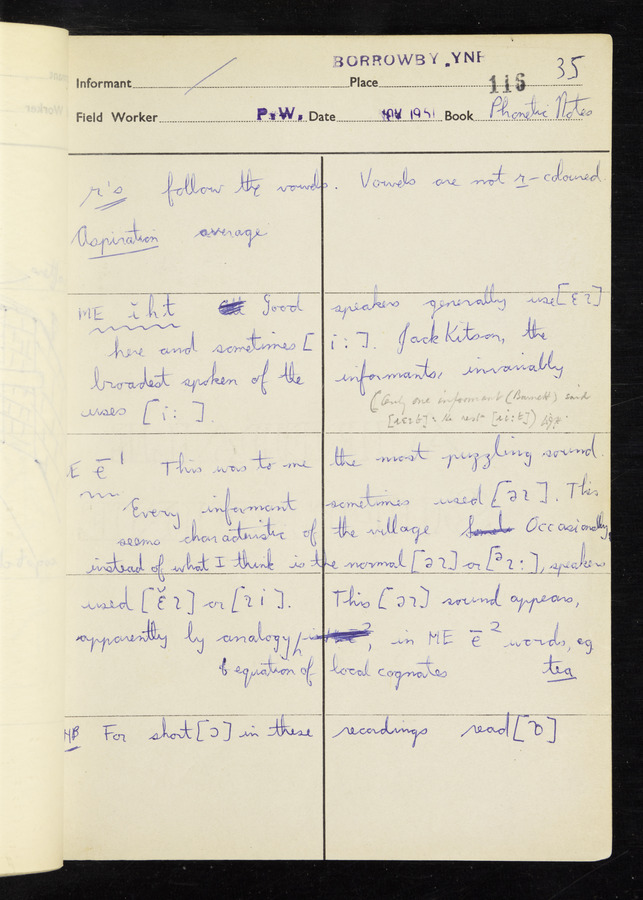 BORROWBY .YNR 35
Informant Place 116
Field Worker P.W. Date NOV 1951 Book Phonetic Notes
r's follow the vowels. Vowels are not r-coloured.
Aspiration average
ME iht Good speakers generally use [ɛɪ]
here and sometimes [i:]. Jack Kitson, the
broadest spoken of the informants, invariably
uses [i:].
(Only one informant ( ) said
: the rest )
E ē¹ This was to me the most puzzling sound.
Every informant sometimes used [əɪ]. This
seems characteristic of the village Occasionally,
instead of what I think is the normal [əɪ] or [ᵊɪ:], speakers
used [ɛ̆ɪ] or [ɪi]. This [əɪ] sound appears,
apparently by analogy, in ME ē² words, eg
equation of local cognates tea
NB For short [ɔ] in these recordings read [ɒ]